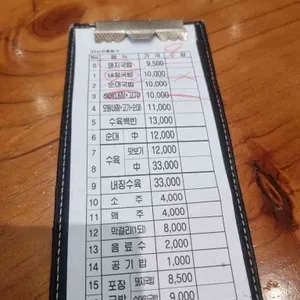 No 품 가 격 수 량
0 돼지국밥 9,500
1 내장국밥 10,000
2 순대국밥 10,000
3 10,000
4 11,000
5 수육백반 13,000
6 순대 中 12,000
7 수육 맛보기 12,000
8 中 33,000
9 내장수육 33,000
10 소 주 4,000
11 맥 주 4,000
12 막걸리(1되) 8,000
13 음 료 수 2,000
14 공 기 밥 1,000
15 포장 돼지국밥 8,500
국밥 9,000